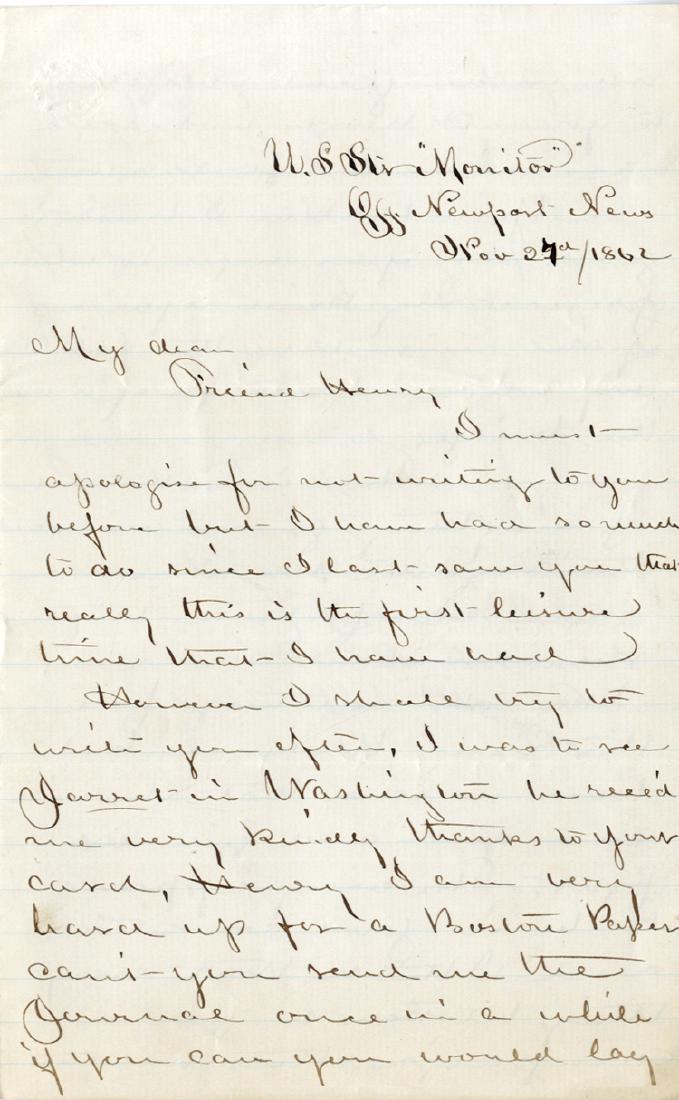 U.S Str "Monitor"
Off Newport News
Nov 27d/1862
My dear
Friend Henry
I must
apologise for not writing to you
before but I have had so much
to do since I last saw you that
really this is the first leisure
time that I have had
However I shall try to
write you often, I was to see
Jarret in Washington he recd
me very kindly thanks to your
card, Henry I am very
hard up for a Boston Paper
can't you send me the
Journal once in a while
if you can you would lay